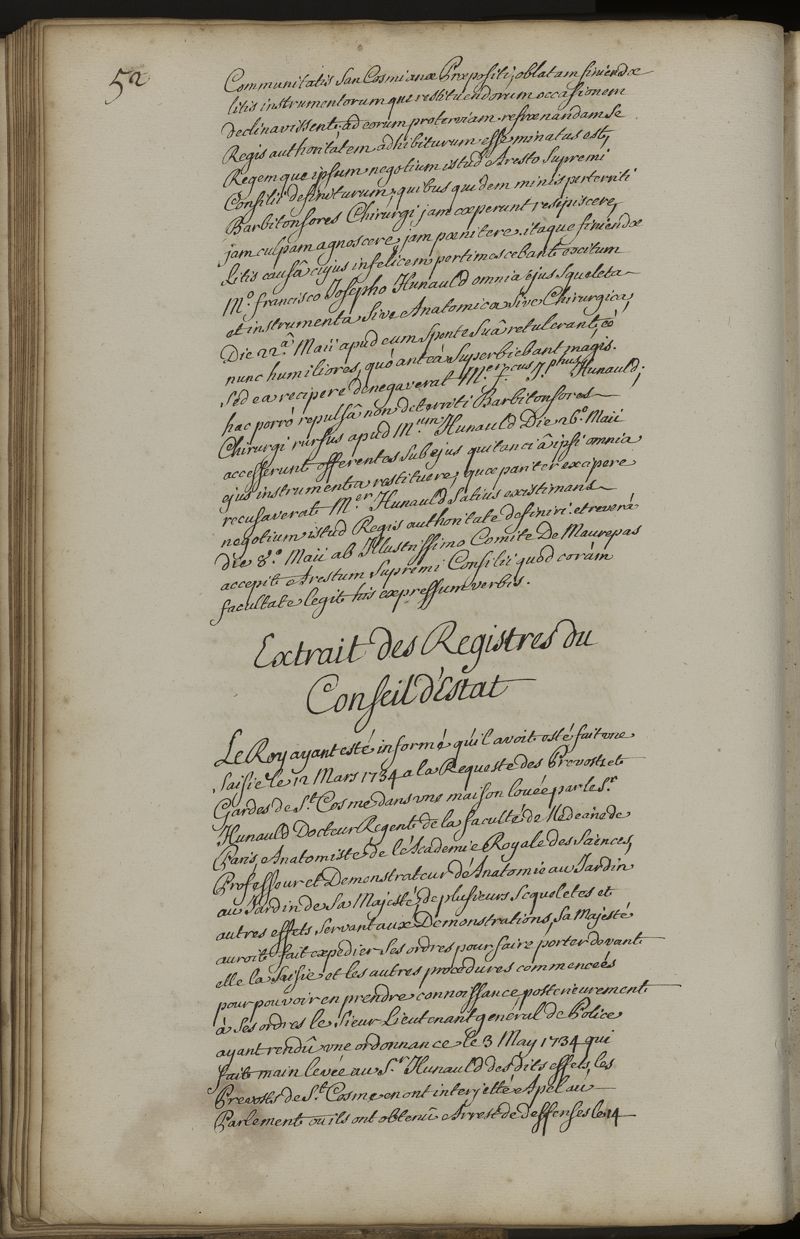 52
Communitatis San Cosmianæ Præpositi, oblatam finiendæ
litis instrumentorumque restituendorum occasionem
declinavissent, ad eorum proterviam refrenandam se
Regis authoritatem adhibiturum esse minatus est,
Regemque ipsum negotium istud Aresto Supremi
Consilii definiturum, quibus quidem minis perterriti
Barbitonsores Chirurgi jam cœperunt resipiscere,
jam culpam agnoscere, jam pœnitere, itaque finiendæ
Litis causâ cujus infelicem pertimescebant exitum
M.o francisco Josepho Hunauld omnia ejus Squeleta
et instrumenta sive Anatomica sive Chirurgica,
Die 22.â Maii apud eum sponte suâ retulerant, eò
nunc humiliores, quó anteà superbiebant magis.
Sed ea recipere denegaverat M.er f.cus J.phus Hunauld;
hac porrò repulsâ non deterriti Barbitonsores
Chirurgi rursus apud M.um Hunauld Die 26.o Maii
accesserunt offerentes sub ejus quitanciâ ipsi omnia
ejus instrumenta restituere, quæ pariter excipere
recusaverat M.er Hunauld Satius existimans
negotium istud Regis authoritate definiri. et reverá
die 8.o Maii ab Illustrissimo Comite De Maurepas
accepit Arestum Supremi Consilii quod coràm
facultate legit his expressum verbis.
Extrait des Registres du
Conseil d'Estat
Le Roy ayant esté informé qu'il avoit esté fait une
Saisie le 12 Mars 1734 a la Requeste des Prevost et
Gardes de S.t Cosme dans une maison louée par le S.r
Hunauld Docteur Regent de la faculté de Medecine de
Paris, Anatomiste de l'Academie Royale des Sciences,
Professeur et Demonstrateur d'Anatomie au Jardin
au Jardin de Sa Majesté, de plusieurs Squeletes et
autres effets servant aux Demonstrations, sa Majesté
auroit fait expedier ses ordres pour faire porter devant
elle la Saisie et les autres procedures commencées
pour pouvoir en prendre connoissance, posterieurement
à ses ordres le Sieur Lieutenant général de Police
ayant rendû une ordonnance le 3 May 1734 qui
fait main levée au S.r Hunauld des dits effets, les
Prevosts de S.t Cosme en ont interjetté Apel au
Parlement ou ils ont obtenû Arrest de deffenses le 14